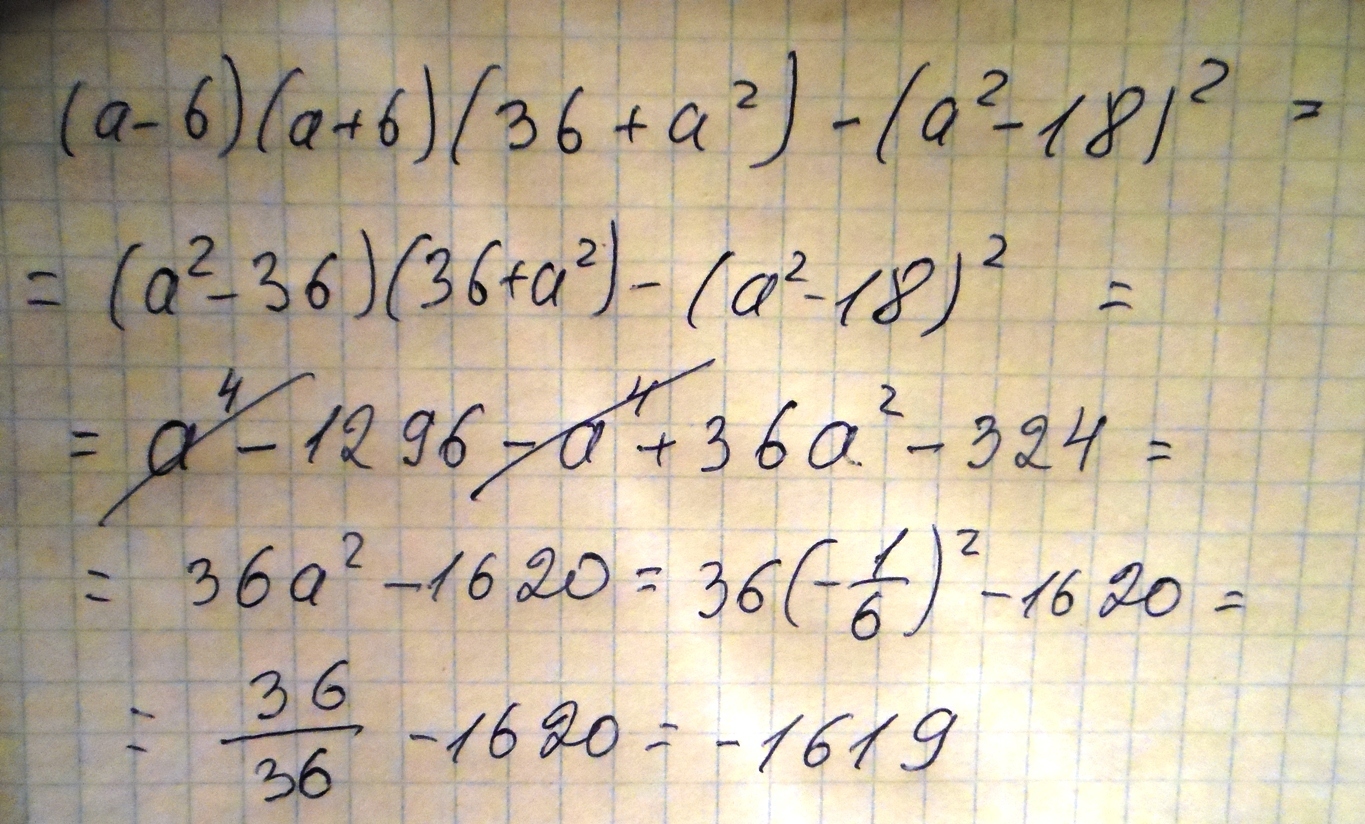 (a-6)(a+6)(36+a²)-(a²-18)² =
= (a²-36)(36+a²)-(a²-18)² =
= a⁴-1296-a⁴+36a²-324 =
= 36a²-1620 = 36(-1/6)²-1620 =
= 36/36 -1620 = -1619